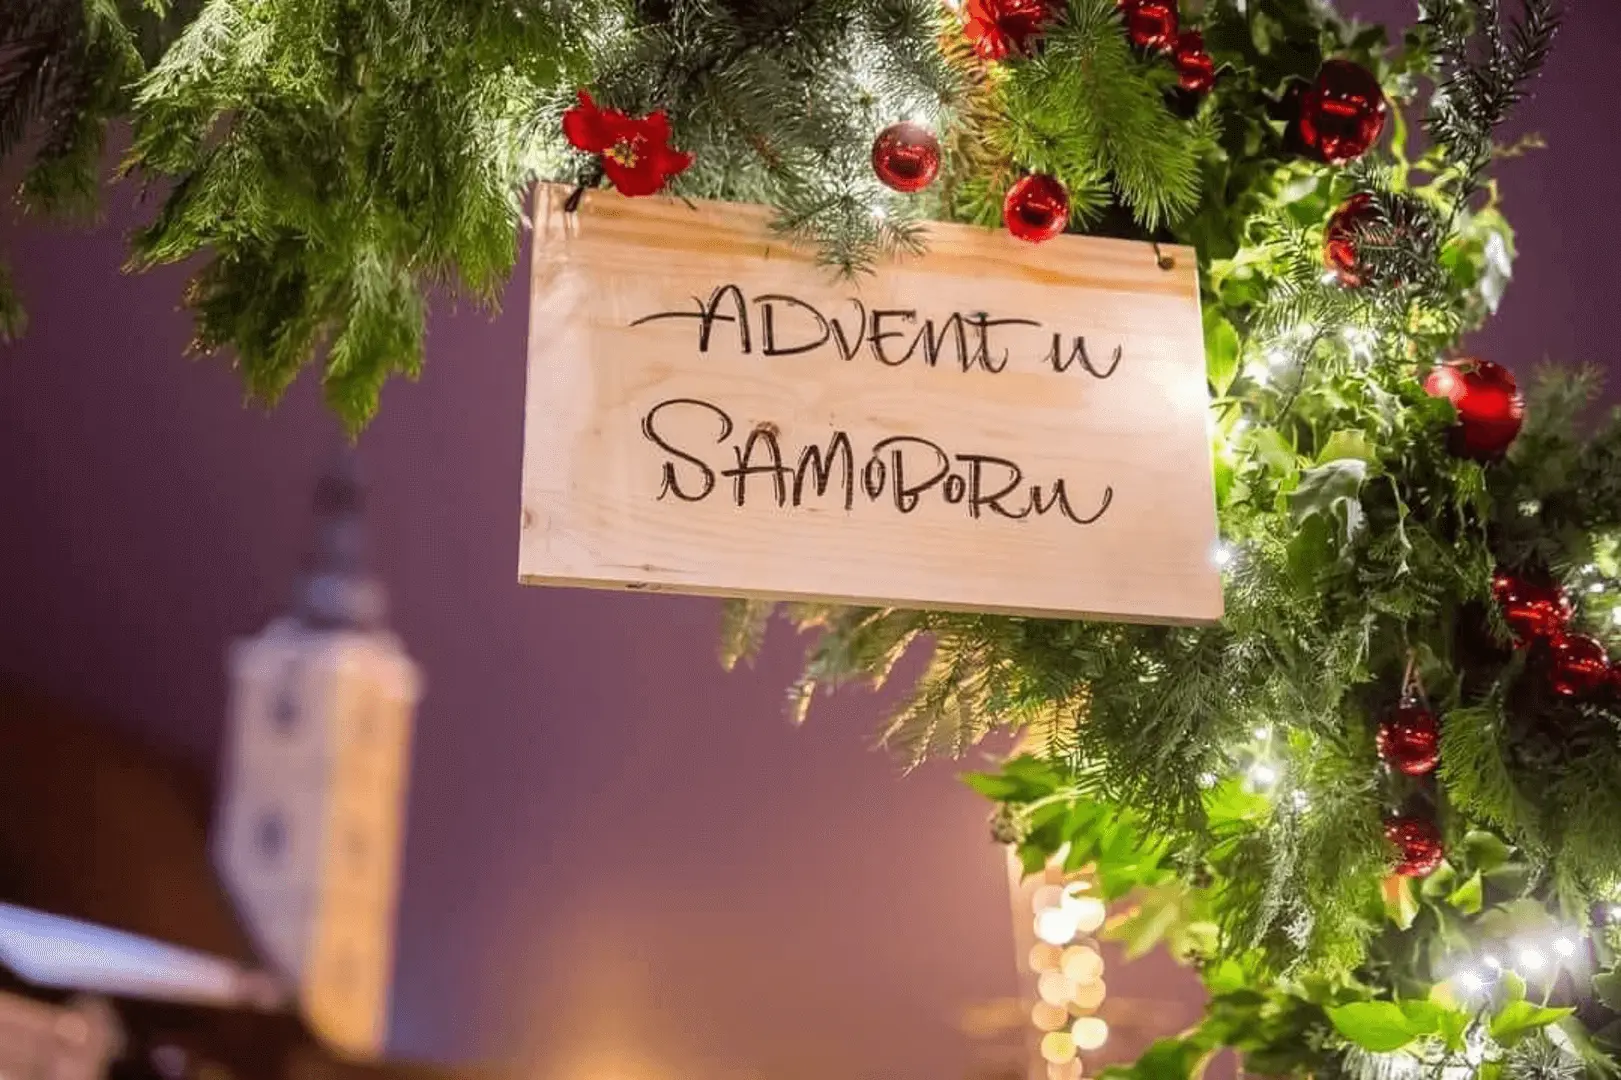 ADVENT U
SAMOBORU